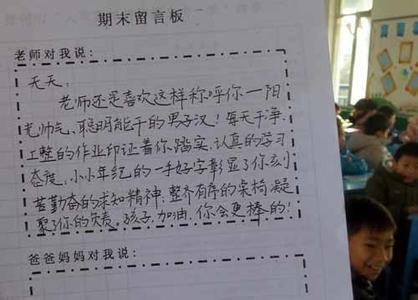 期末留言板
老师对我说：
天天：
老师还是喜欢这样称呼你－阳
光帅气、聪明能干的男子汉！每天干净、
工整的作业印证着你踏实、认真的学习
态度，小小年纪的一手好字彰显了你刻
苦勤奋的求知精神，整齐有序的桌椅凝
聚了你的负责，孩子，加油，你会更棒的！
爸爸妈妈对我说：